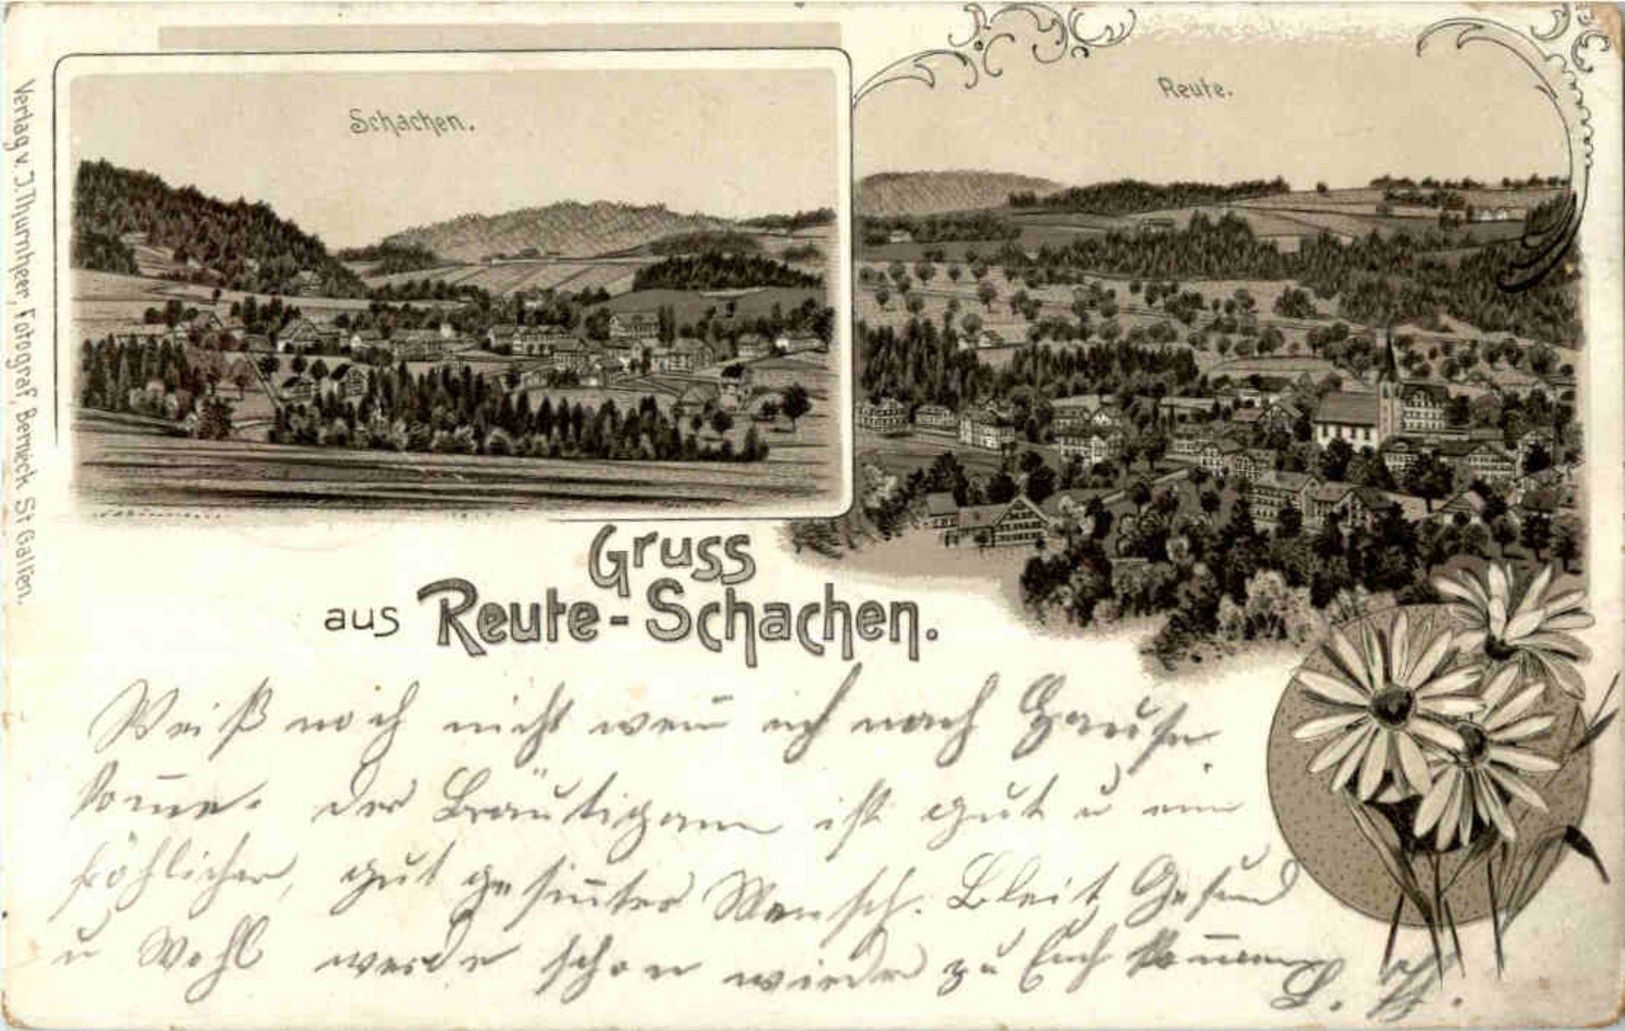 Verlag v. J. Thurnheer, Fotograf, Berneck St Gallen.
Schachen.
Reute.
Gruss
aus Reute-Schachen.
Weiß noch nicht wen̄ ich nach Hause
kom̄e. der Bräutigam ist gut u ein
fröhlicher, gut gesin̄ter Mensch. Bleit Gesund
u Wohl werde schon wieder zu Euch kom̄en